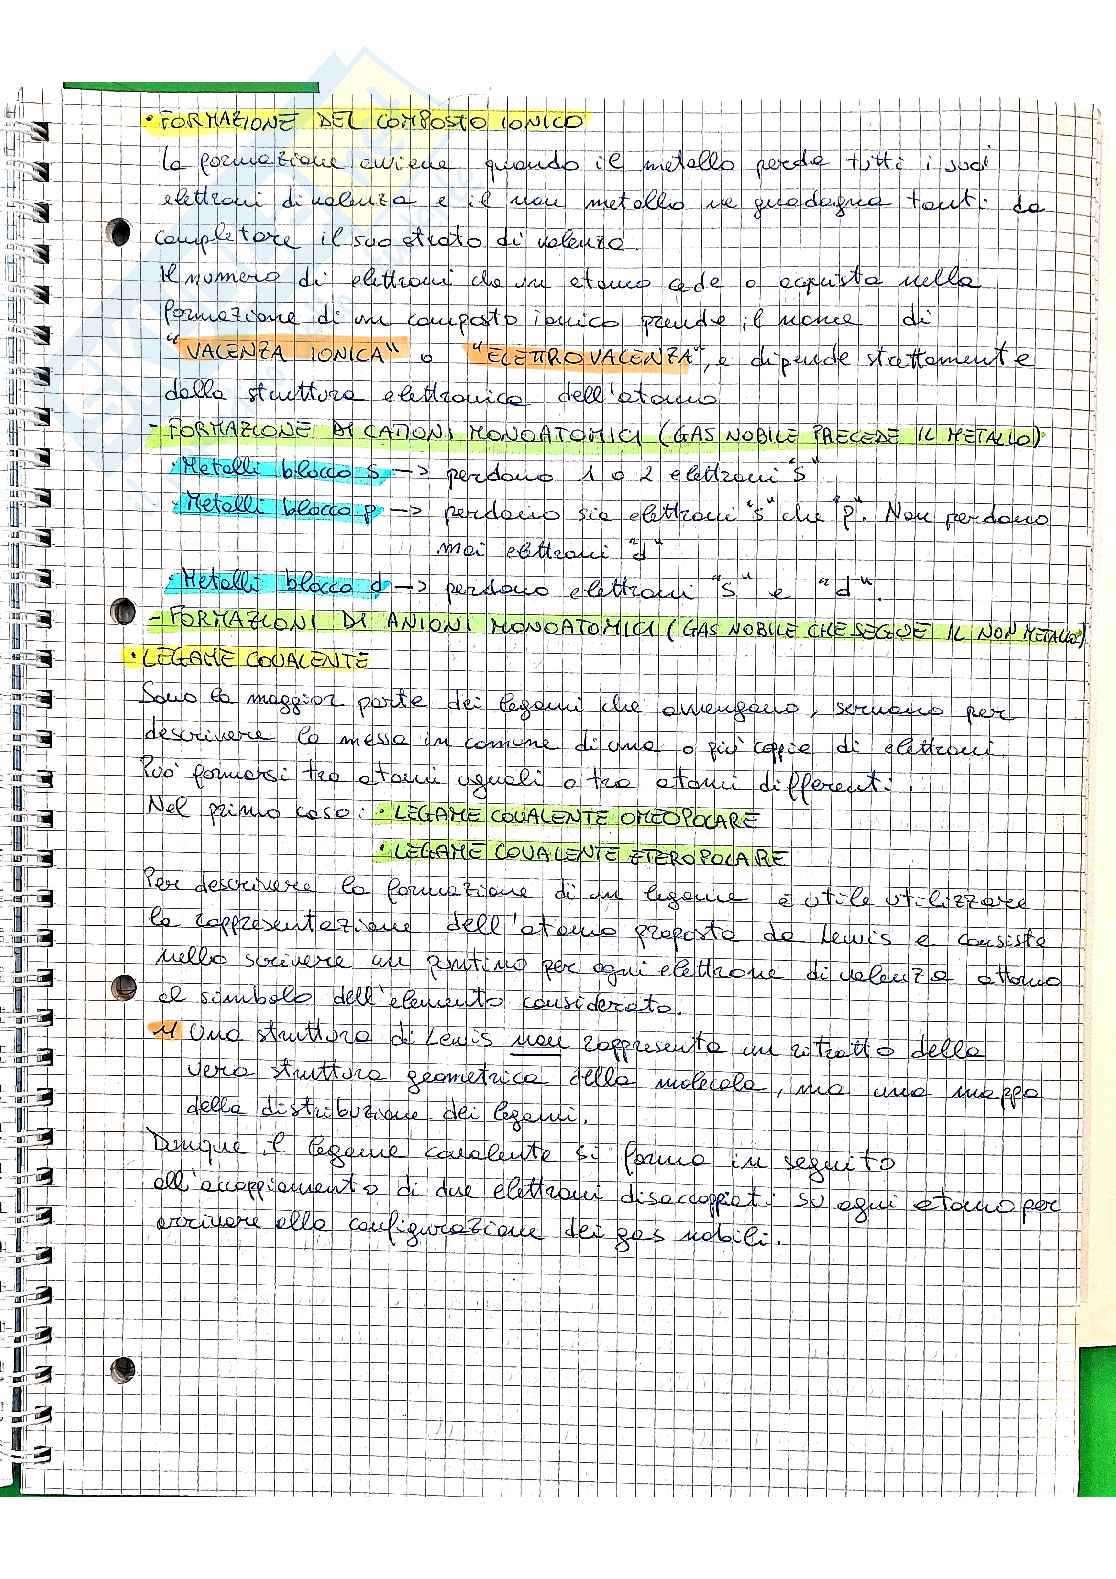 • FORMAZIONE DEL COMPOSTO IONICO
La formazione avviene quando il metallo perde tutti i suoi
elettroni di valenza e il non metallo ne guadagna tanti da
completare il suo strato di valenza.
Il numero di elettroni che un atomo cede o acquista nella
formazione di un composto ionico prende il nome di
"VALENZA IONICA" o "ELETTROVALENZA", e dipende strettamente
dalla struttura elettronica dell'atomo
- FORMAZIONE DI CATIONI MONOATOMICI (GAS NOBILE PRECEDE IL METALLO)
• Metalli blocco s -> perdono 1 o 2 elettroni "s"
• Metalli blocco p -> perdono sia elettroni "s" che "p". Non perdono
mai elettroni "d"
• Metalli blocco d -> perdono elettroni "s" e "d".
- FORMAZIONI DI ANIONI MONOATOMICI (GAS NOBILE CHE SEGUE IL NON METALLO)
• LEGAME COVALENTE
Sono la maggior parte dei legami che avvengono, servono per
descrivere la messa in comune di una o più coppie di elettroni.
Può formarsi tra atomi uguali o tra atomi differenti.
Nel primo caso: • LEGAME COVALENTE OMEOPOLARE
• LEGAME COVALENTE ETEROPOLARE
Per descrivere la formazione di un legame è utile utilizzare
la rappresentazione dell'atomo proposta da Lewis e consiste
nello scrivere un puntino per ogni elettrone di valenza attorno
al simbolo dell'elemento considerato.
Una struttura di Lewis non rappresenta un ritratto della
vera struttura geometrica della molecola, ma una mappa
della distribuzione dei legami.
Dunque il legame covalente si forma in seguito
all'accoppiamento di due elettroni disaccoppiati su ogni atomo per
arrivare alla configurazione dei gas nobili.